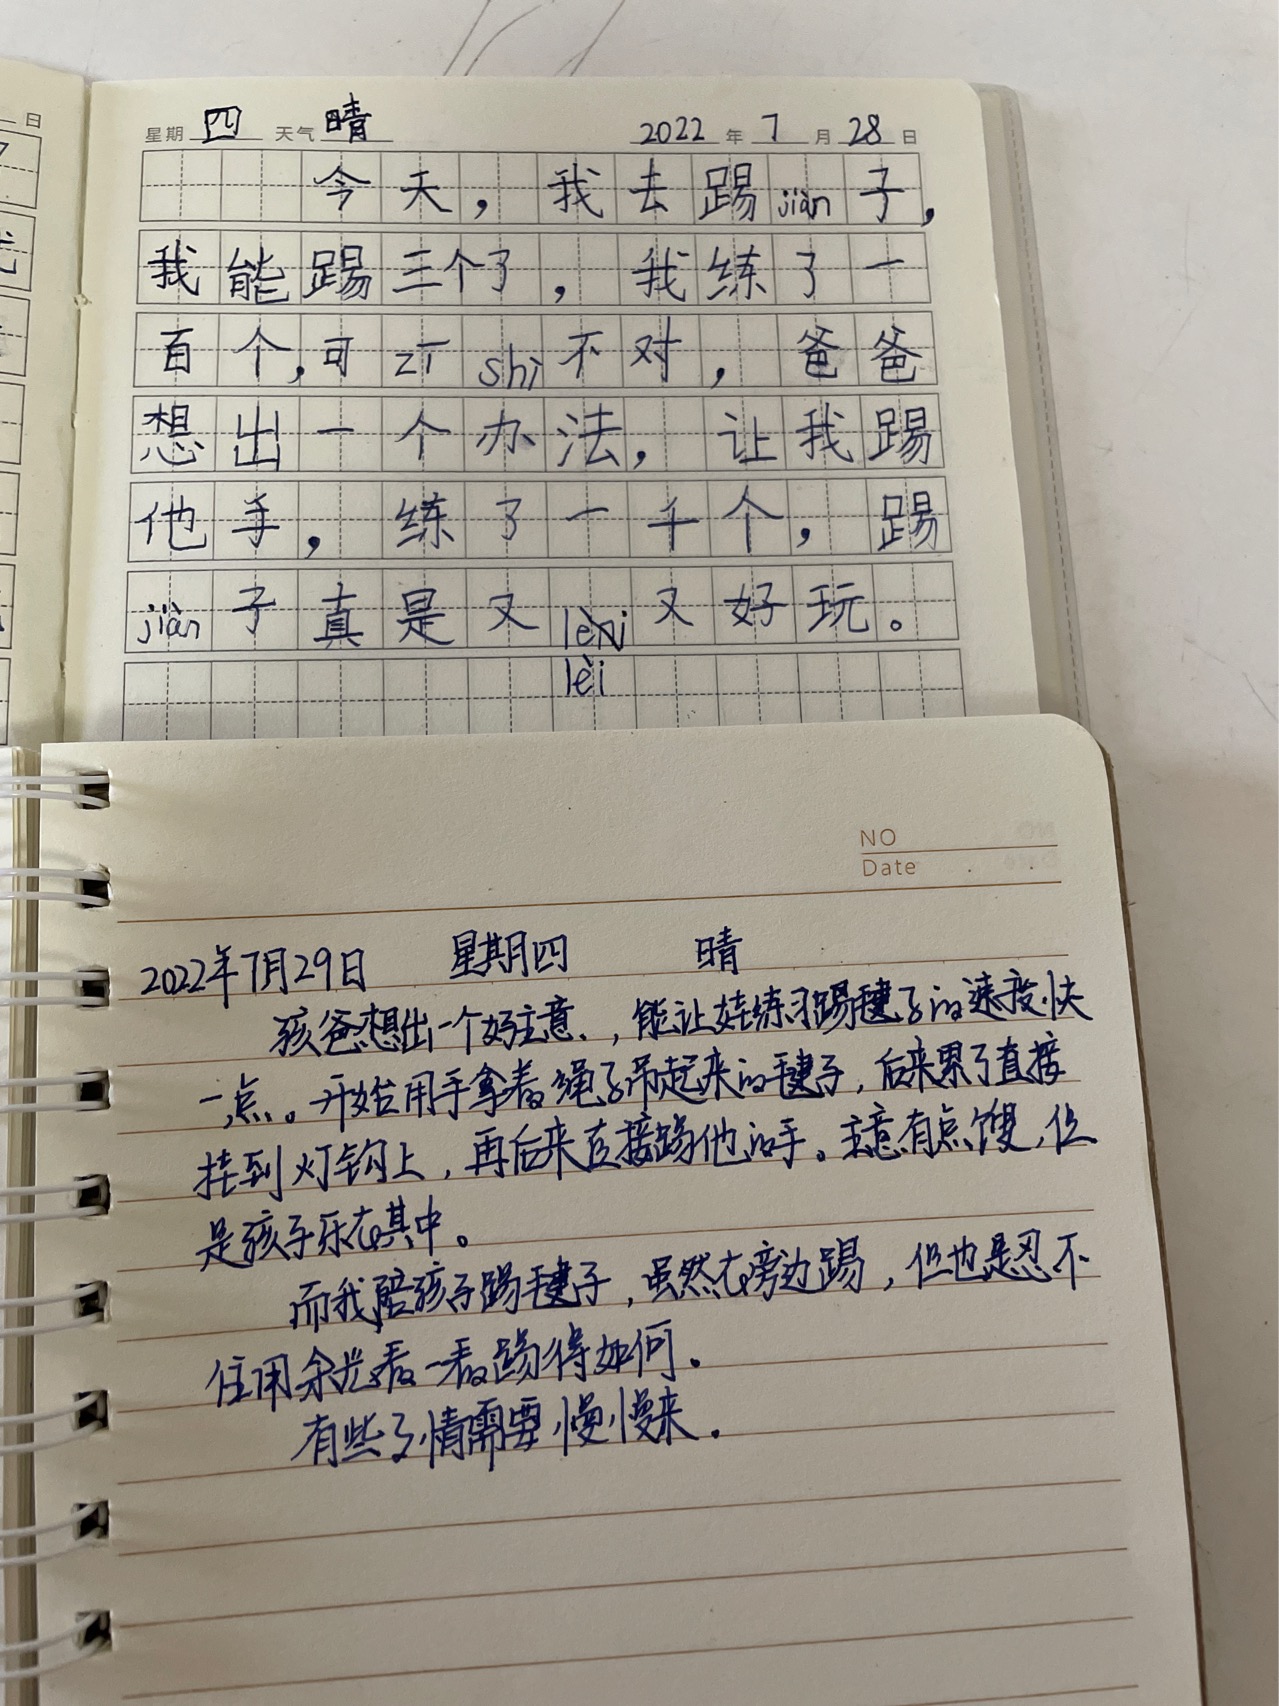 日
星期 四 天气 晴 2022 年 7 月 28 日
今天，我去踢jiàn子，
我能踢三个了，我练了一
百个，可zī shì不对，爸爸
想出一个办法，让我踢
他手，练了一千个，踢
jiàn子真是又lèi又好玩。
lèi
NO
Date
2022年7月29日 星期四 晴
孩爸想出一个好主意，能让娃练习踢毽子的速度快
一点。开始用手拿着绳子吊起来的毽子，后来累了直接
挂到灯钩上，再后来直接踢他的手。主意有点馊，但
是孩子乐在其中。
而我陪孩子踢毽子，虽然在旁边踢，但也是忍不
住用余光看一看踢得如何。
有些事情需要慢慢来。